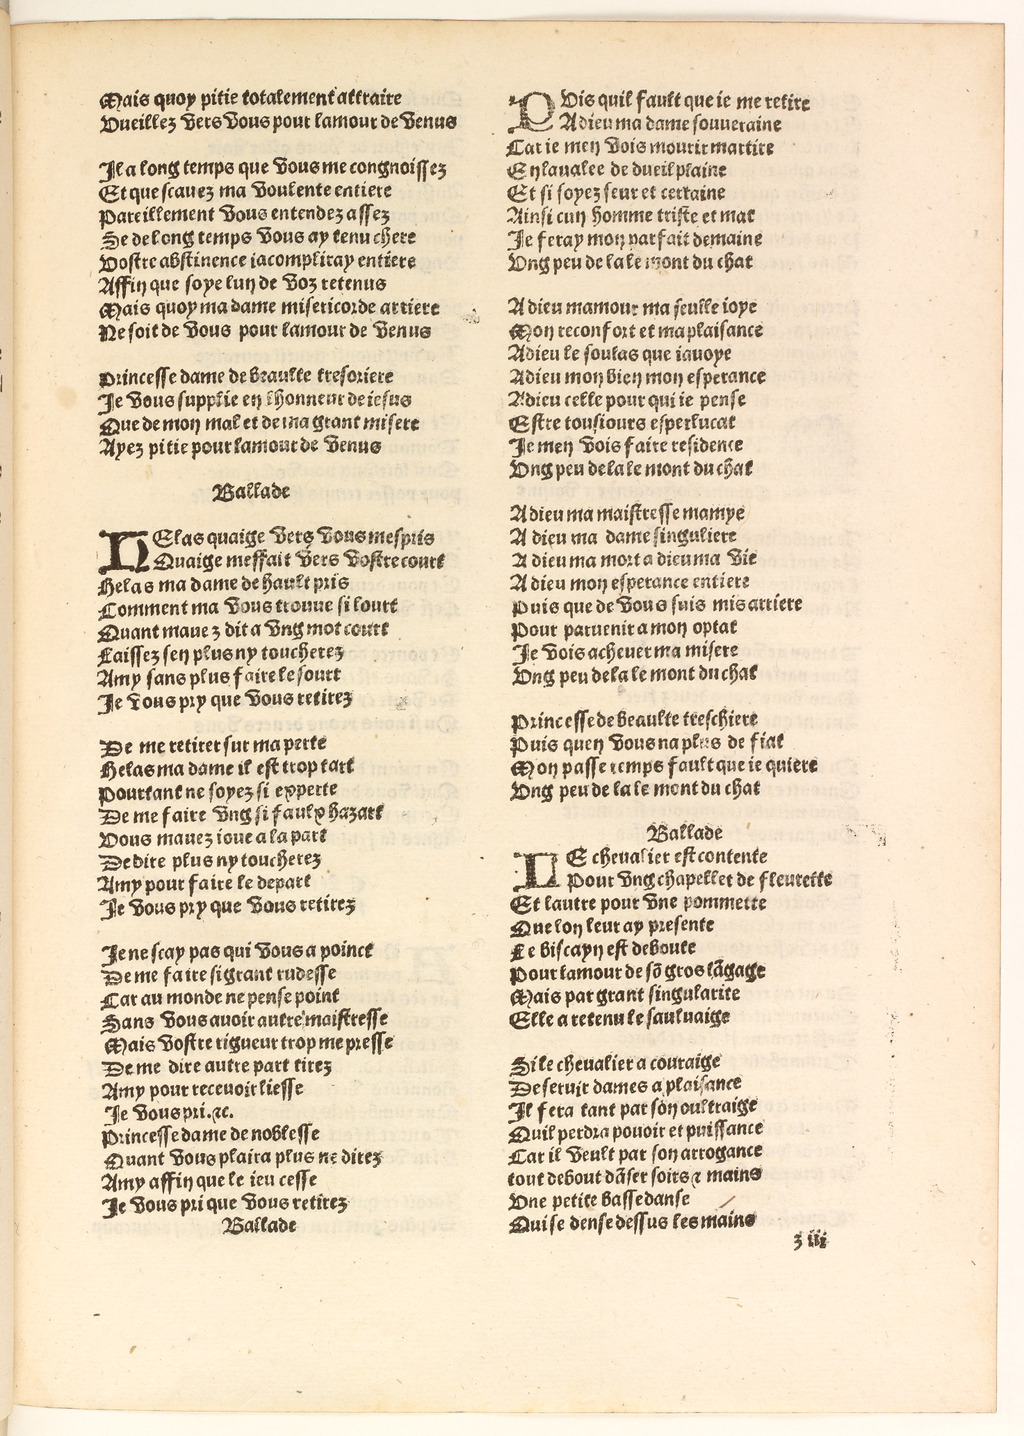 Mais quoy pitie totalement attraire
Vueillez vers vous pour lamour de venus
Il a long temps que vous me congnoissez
Et que scavez ma voulente entiere
Pareillement vous entendez assez
Se de long temps vous ay tenu chere
Vostre abstinence iacompliray entiere
Affin que soye lun de voz retenus
Mais quoy ma dame misericorde arriere
Ne soit de vous pour lamour de venus
Princesse dame de beaulte tresoriere
Je vous supplie en lhonneur de iesus
Que de mon mal et de ma grant misere
Ayez pitie pour lamour de venus
Ballade
HElas quaige vers vous mespris
Quaige meffait vers vostre court
Helas ma dame de hault pris
Comment ma vous trouue si lourt
Quant mauez dit a vng mot court
Laissez sen plus ny toucherez
Amy sans plus faire le sourt
Je vous pry que vous retirez
De me retirer sur ma perte
Helas ma dame il est trop tart
Pourtant ne soyez si experte
De me faire vng si faulx hazart
Vous mauez ioue a la part
De dire plus ny toucherez
Amy pour faire le depart
Je vous pry que vous retirez
Je ne scay pas qui vous a poinct
De me faire si grant rudesse
Car au monde ne pense point
Sans vous auoir autre maistresse
Mais vostre rigueur trop me presse
De me dire autre part tirez
Amy pour receuoir liesse
Je vous pri. ⁊c.
Princesse dame de noblesse
Quant vous plaira plus ne direz
Amy affin que le ieu cesse
Je vous pri que vous retirez
Ballade
PVis quil fault que ie me retire
Adieu ma dame souueraine
Car ie men vois mourir martire
En lauallee de dueil plaine
Et si soyez seur et certaine
Ainsi cun homme triste et mat
Je feray mon parfait demaine
Vng peu de la le mont du chat
Adieu mamour ma seulle ioye
Mon reconfort et ma plaisance
Adieu le soulas que iauoye
Adieu mon bien mon esperance
Adieu celle pour qui ie pense
Estre tousiours esperlucat
Je men vois faire residence
Vng peu de la le mont du chat
Adieu ma maistresse mamye
A dieu ma dame singuliere
A dieu ma mort a dieu ma vie
A dieu mon esperance entiere
Puis que de vous suis mis arriere
Pour paruenir a mon optat
Je vois acheuer ma misere
Vng peu de la le mont du chat
Princesse de beaulte treschiere
Puis quen vous na plus de fiat
Mon passe temps fault que ie quiere
Vng peu de la le mont du chat
Ballade
LE cheualier est contente
Pour vng chapellet de fleurette
Et lautre pour vne pommette
Que lon leur ay presente
Le biscayn est deboute
Pour lamour de sõ gros lãgage
Mais par grant singularite
Elle a retenu le sauluaige
Si le cheualier a couraige
De seruir dames a plaisance
Il fera tant par son oultraige
Quil perdra pouoir et puissance
Car il veult par son arrogance
tout debout dãser soirs ⁊ mains
Vne petite basse danse
Qui se dense dessus les mains
z iii